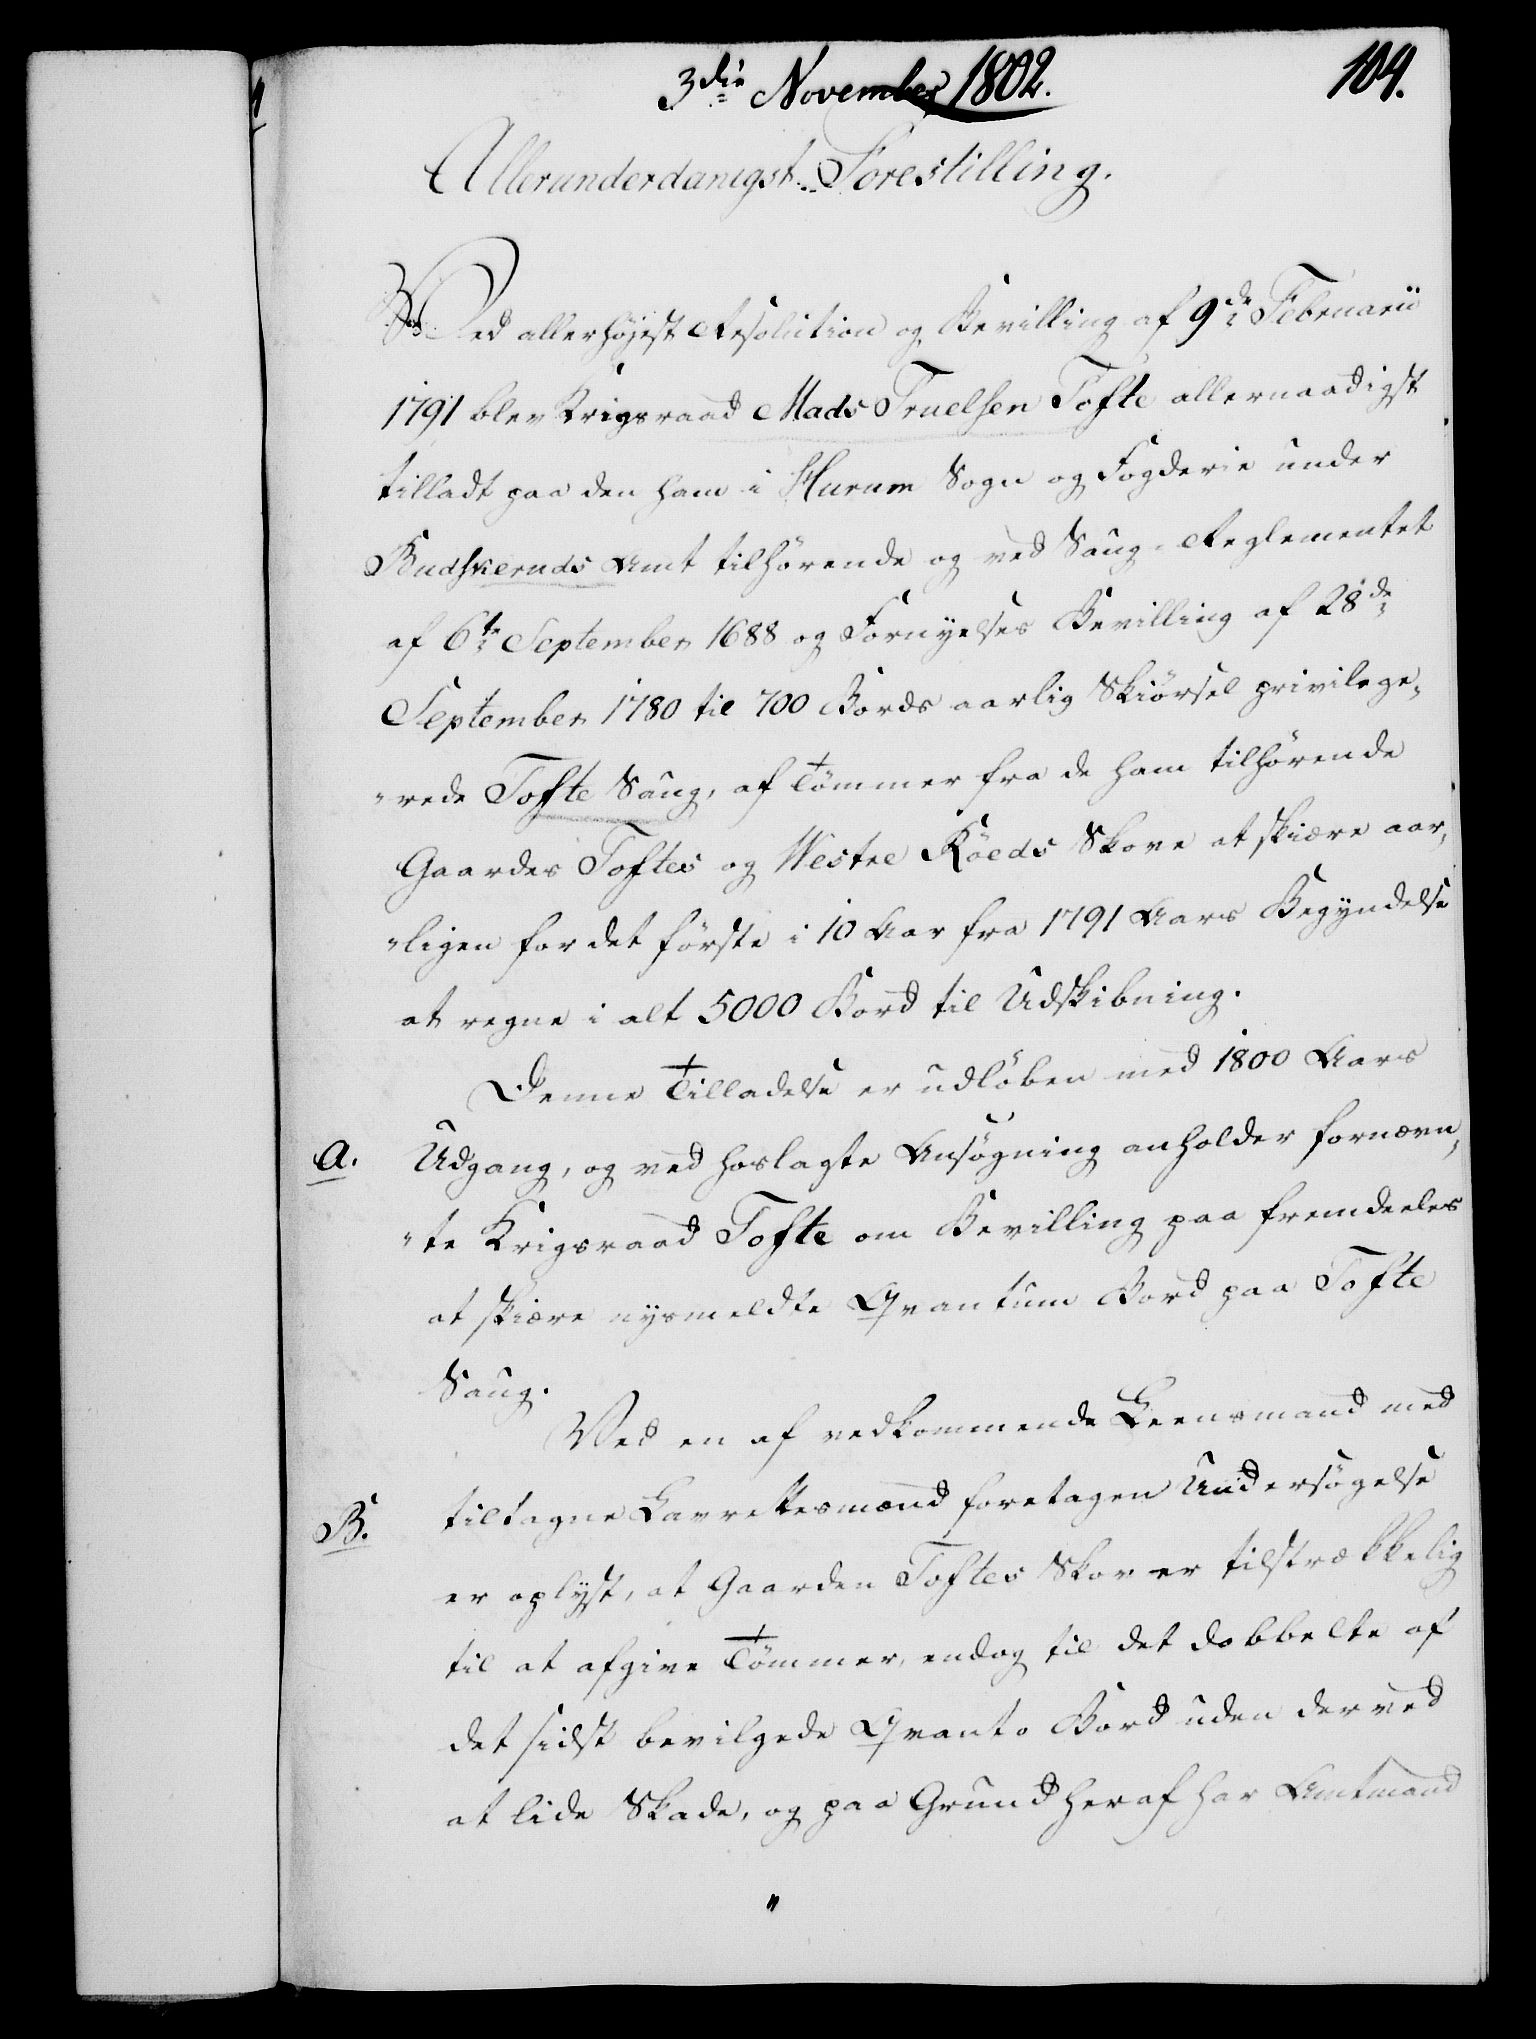 3die November 1802.
104.
Allerunderdanigst Forestilling.
Ved allerhøjest Resolution og Bevilling af 9de Februarii
1791 blev Krigsraad Mads Truelsen Tofte allernaadigst
tilladt paa den ham i Hurum Sogn og Fogderie under
Budskeruds Amt tilhørende og ved Saug-Reglementet
af 6te September 1688 og Fornyelses Bevilling af 28de
September 1780 til 700 Bords aarlig Skiørsel privilege-
"rede Tofte Saug, af Tømmer fra de ham tilhørende
Gaardes Toftes og Westre Røeds Skove at skiære aar-
"ligen for det første i 10 Aar fra 1791 Aars Begyndelse
at regne i alt 5000 Bord til Udskibning.
Denne Tilladelse er udløben med 1800 Aars
a. Udgang, og ved hoslagte Ansøgning anholder fornævn-
"te Krigsraad Tofte om Bevilling paa fremdeeles
at skiære nysmeldte Qvantum Bord paa Tofte
Saug.
Ved en af vedkommende Leensmand med
B. tiltagne Laugrettesmænd foretagen Undersøgelse
er oplyst, at Gaarden Toftes Skov er tilstrækkelig
til at afgive Tømmer, endog til det dobbelte af
det sidst bevilgede Qvanto Bord uden derved
at lide Skade, og paa Grund heraf har Amtmand
"